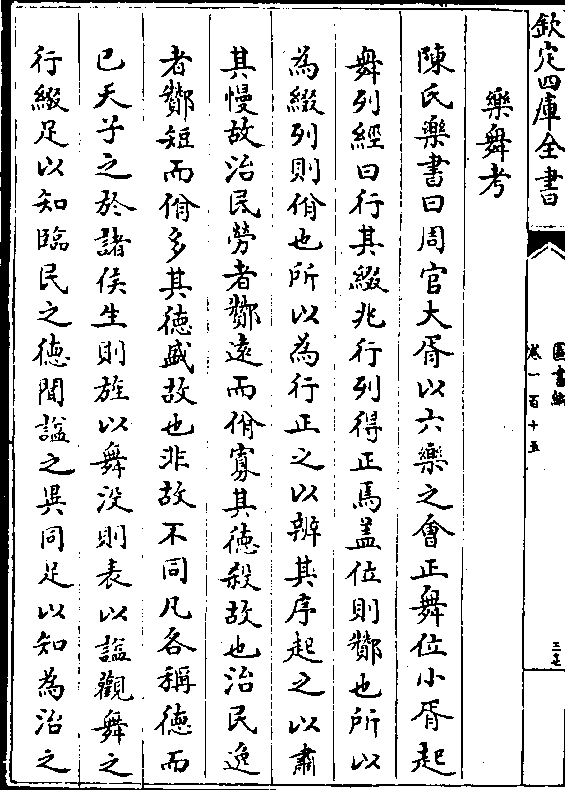 欽定四庫全書
圖書編
卷一百十五
三七
樂舞考
陳氏樂書曰周官大胥以六樂之會正舞位小胥起
舞列經曰行其綴兆行列得正焉盖位則酇也所以
為綴列則佾也所以為行正之以辨其序起之以肅
其慢故治民勞者酇遠而佾寡其徳殺故也治民逸
者酇短而佾多其徳盛故也非故不同凡各稱徳而
已天子之於諸侯生則旌以舞没則表以諡觀舞之
行綴足以知臨民之徳聞諡之異同足以知為治之